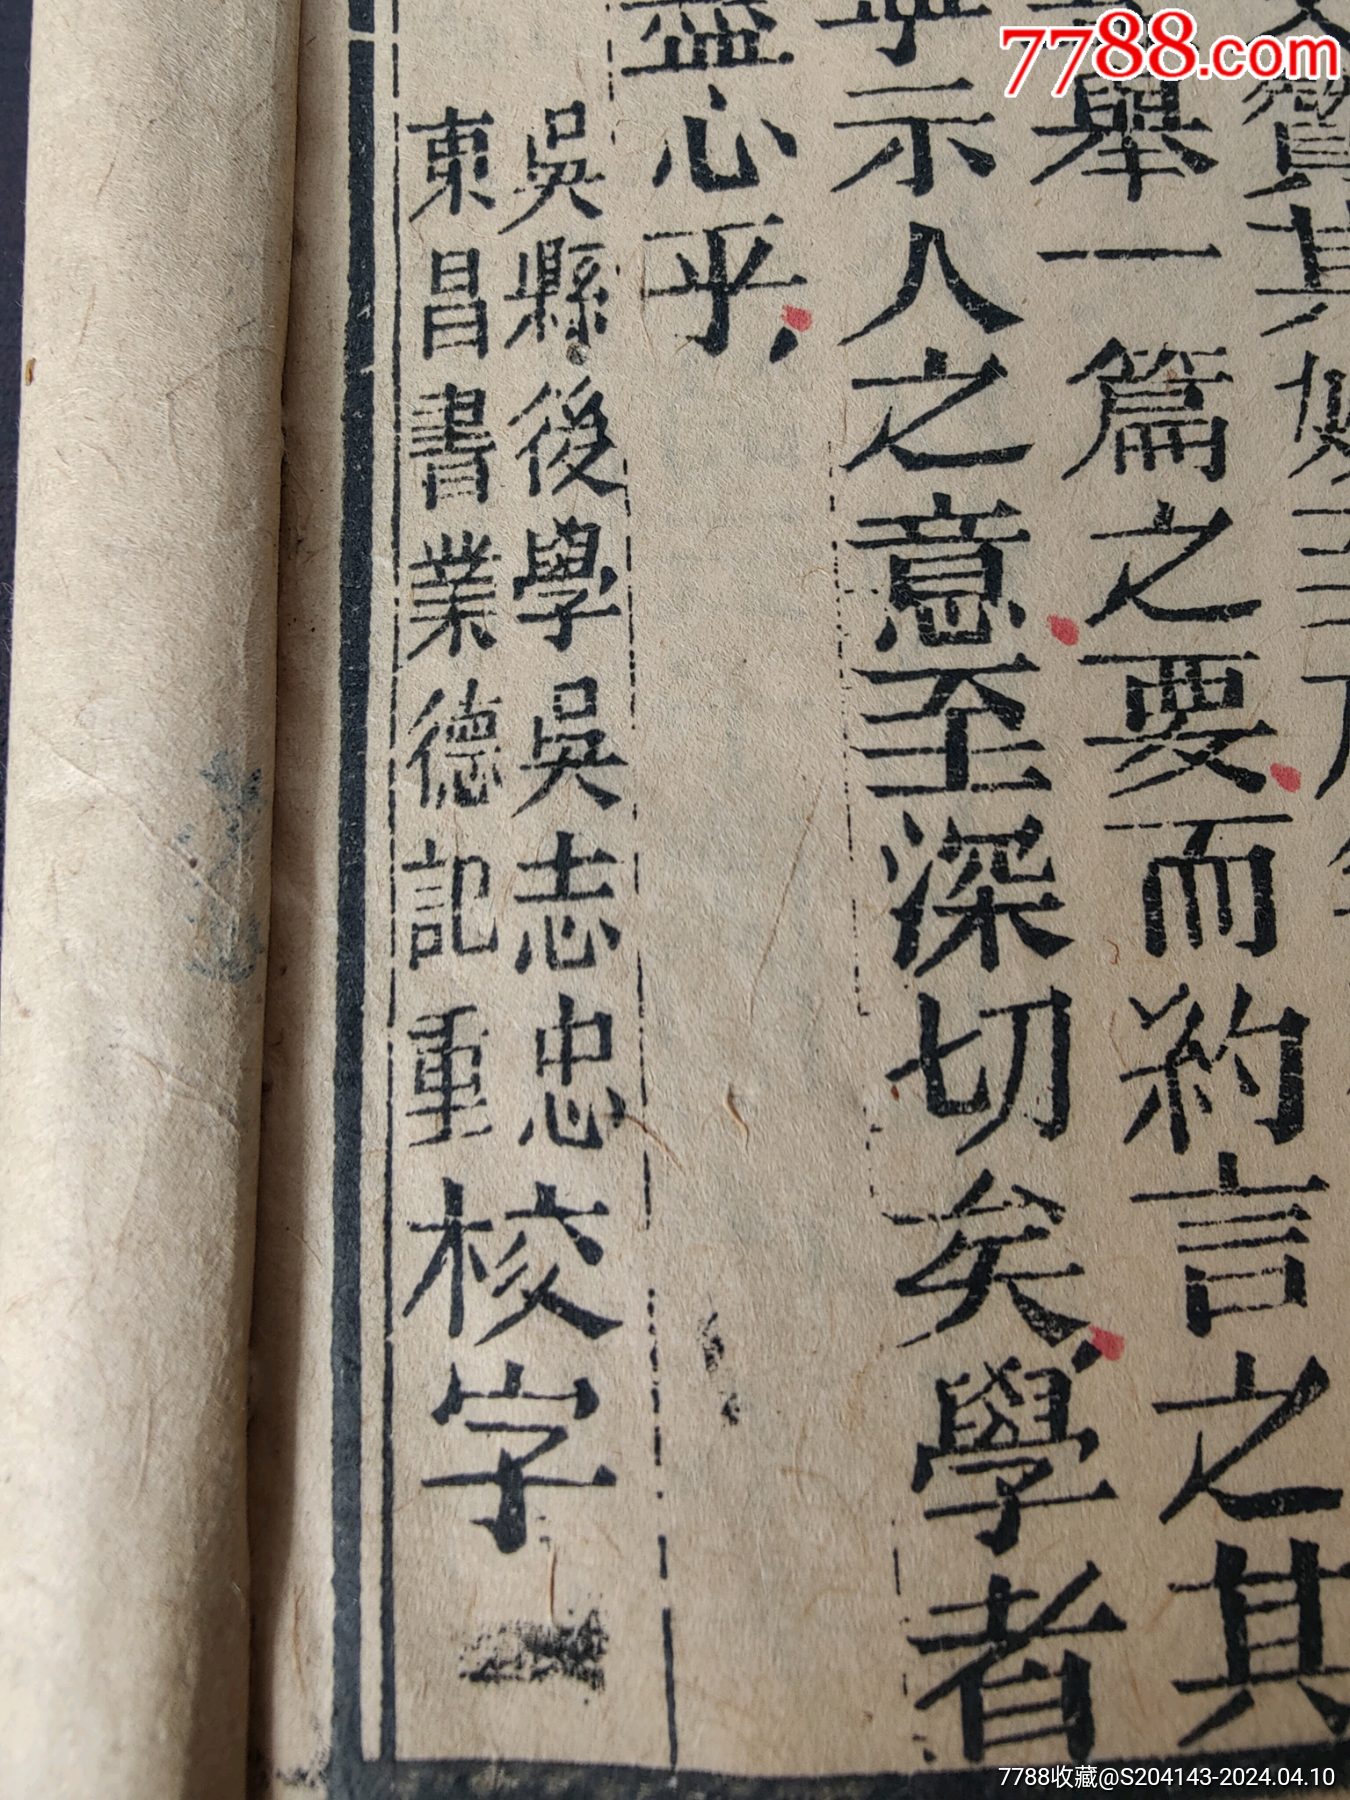 7788.com
贊其妙至
舉一篇之要而約言之其
寧示人之意至深切矣學者
盡心乎
吳縣後學吳志忠
東昌書業德記重
校字
7788收藏@S204143-2024.04.10